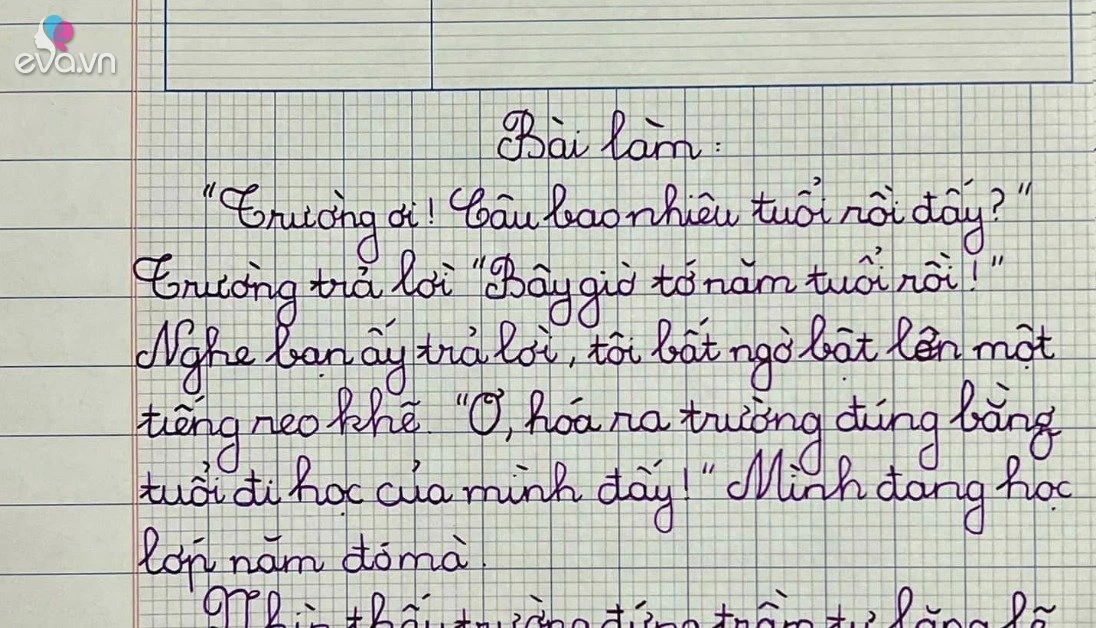 eva.vn
Bài làm:
"Trường ơi! Cậu bao nhiêu tuổi rồi đấy?"
Trường trả lời "Bây giờ tớ năm tuổi rồi!"
Nghe bạn ấy trả lời, tôi bất ngờ bật lên một
tiếng reo khẽ. "Ơ, hóa ra trường đúng bằng
tuổi đi học của mình đấy!" Mình đang học
lớp năm đó mà.
trường đứng trầm tư lặng lẽ